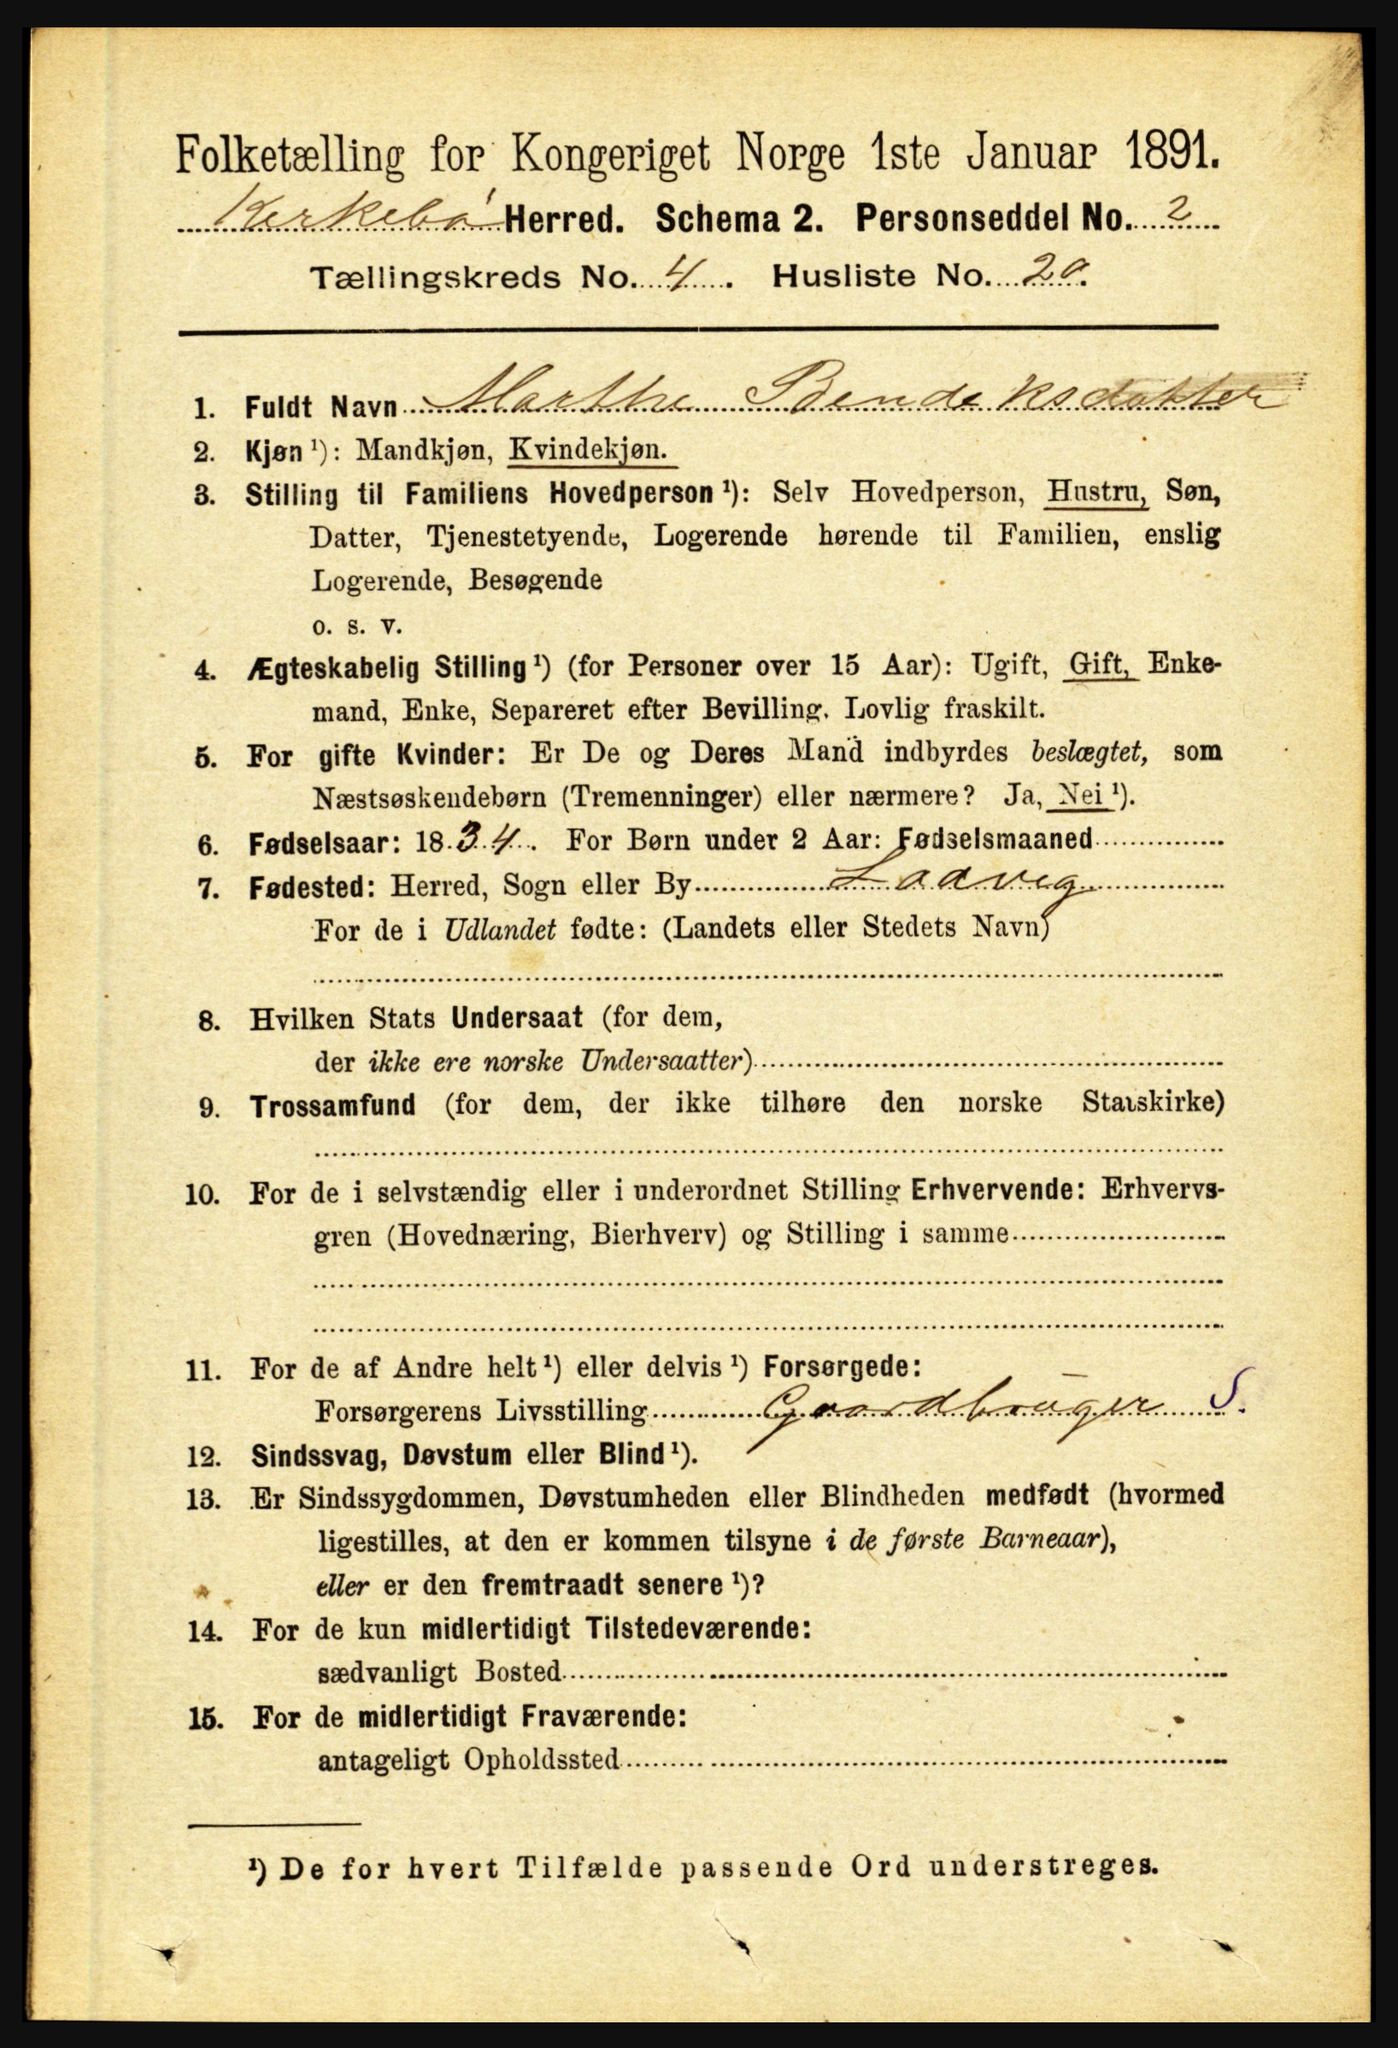 Folketælling for Kongeriget Norge 1ste Januar 1891.
Kirkebø Herred. Schema 2. Personseddel No. 2
Tællingskreds No. 4. Husliste No. 20.
1. Fuldt Navn Marthe Bendeksdatter
2. Kjøn ¹): Mandkjøn, Kvindekjøn.
3. Stilling til Familiens Hovedperson ¹): Selv Hovedperson, Hustru, Søn,
Datter, Tjenestetyende, Logerende hørende til Familien, enslig
Logerende, Besøgende
o. s. v.
4. Ægteskabelig Stilling ¹) (for Personer over 15 Aar): Ugift, Gift, Enke-
mand, Enke, Separeret efter Bevilling. Lovlig fraskilt.
5. For gifte Kvinder: Er De og Deres Mand indbyrdes beslægtet, som
Næstsøskendebørn (Tremenninger) eller nærmere? Ja, Nei ¹).
6. Fødselsaar: 1834. For Børn under 2 Aar: Fødselsmaaned
7. Fødested: Herred, Sogn eller By Ladvig
For de i Udlandet fødte: (Landets eller Stedets Navn)
8. Hvilken Stats Undersaat (for dem,
der ikke ere norske Undersaatter)
9. Trossamfund (for dem, der ikke tilhøre den norske Statskirke)
10. For de i selvstændig eller i underordnet Stilling Erhvervende: Erhvervs-
gren (Hovednæring, Bierhverv) og Stilling i samme
11. For de af Andre helt ¹) eller delvis ¹) Forsørgede:
Forsørgerens Livsstilling Gaardbruger S.
12. Sindssvag, Døvstum eller Blind ¹).
13. Er Sindssygdommen, Døvstumheden eller Blindheden medfødt (hvormed
ligestilles, at den er kommen tilsyne i de første Barneaar),
eller er den fremtraadt senere ¹)?
14. For de kun midlertidigt Tilstedeværende:
sædvanligt Bosted
15. For de midlertidigt Fraværende:
antageligt Opholdssted
¹) De for hvert Tilfælde passende Ord understreges.